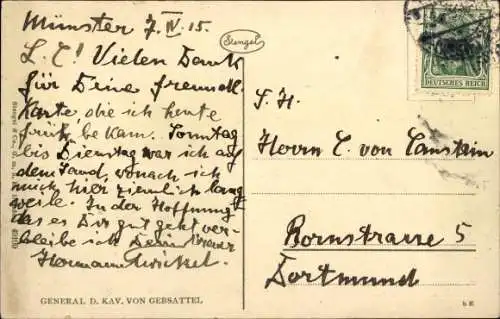 Münster 7. IV. 15.
Stengel
L. C! Vielen Dank
für Deine freundl.
Karte, die ich heute
früh bekam. Sonntag
bis Dienstag war ich auf
dem Land, wonach ich
mich hier ziemlich lang
weile. In der Hoffnung
das es Dir gut geht ver-
bleibe ich Dein treuer
Hermann
GENERAL D. KAV. VON GEBSATTEL
DEUTSCHES REICH
S. H.
Herrn C. von Canstein
Bornstrasse 5
Dortmund